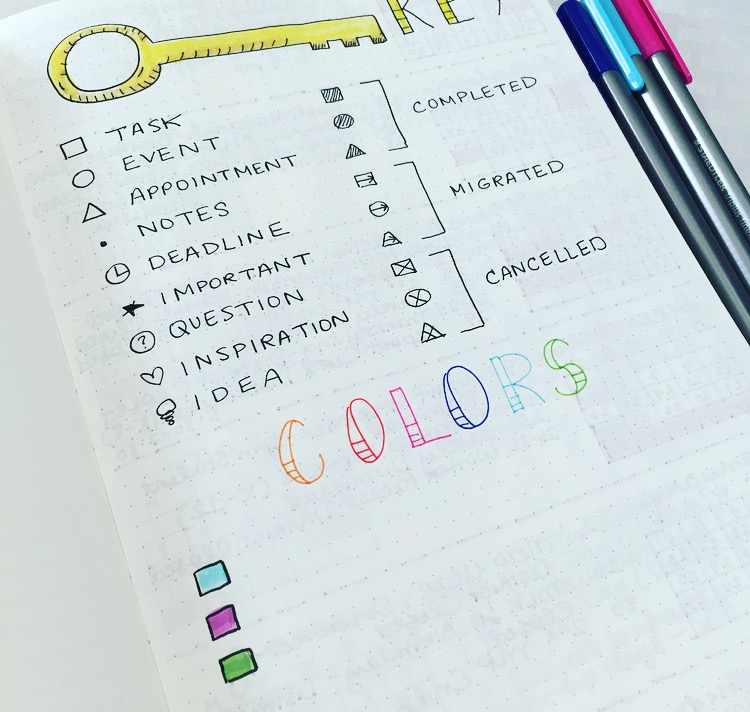 KEY
TASK
EVENT
APPOINTMENT
NOTES
DEADLINE
IMPORTANT
QUESTION
INSPIRATION
IDEA
COMPLETED
MIGRATED
CANCELLED
COLORS